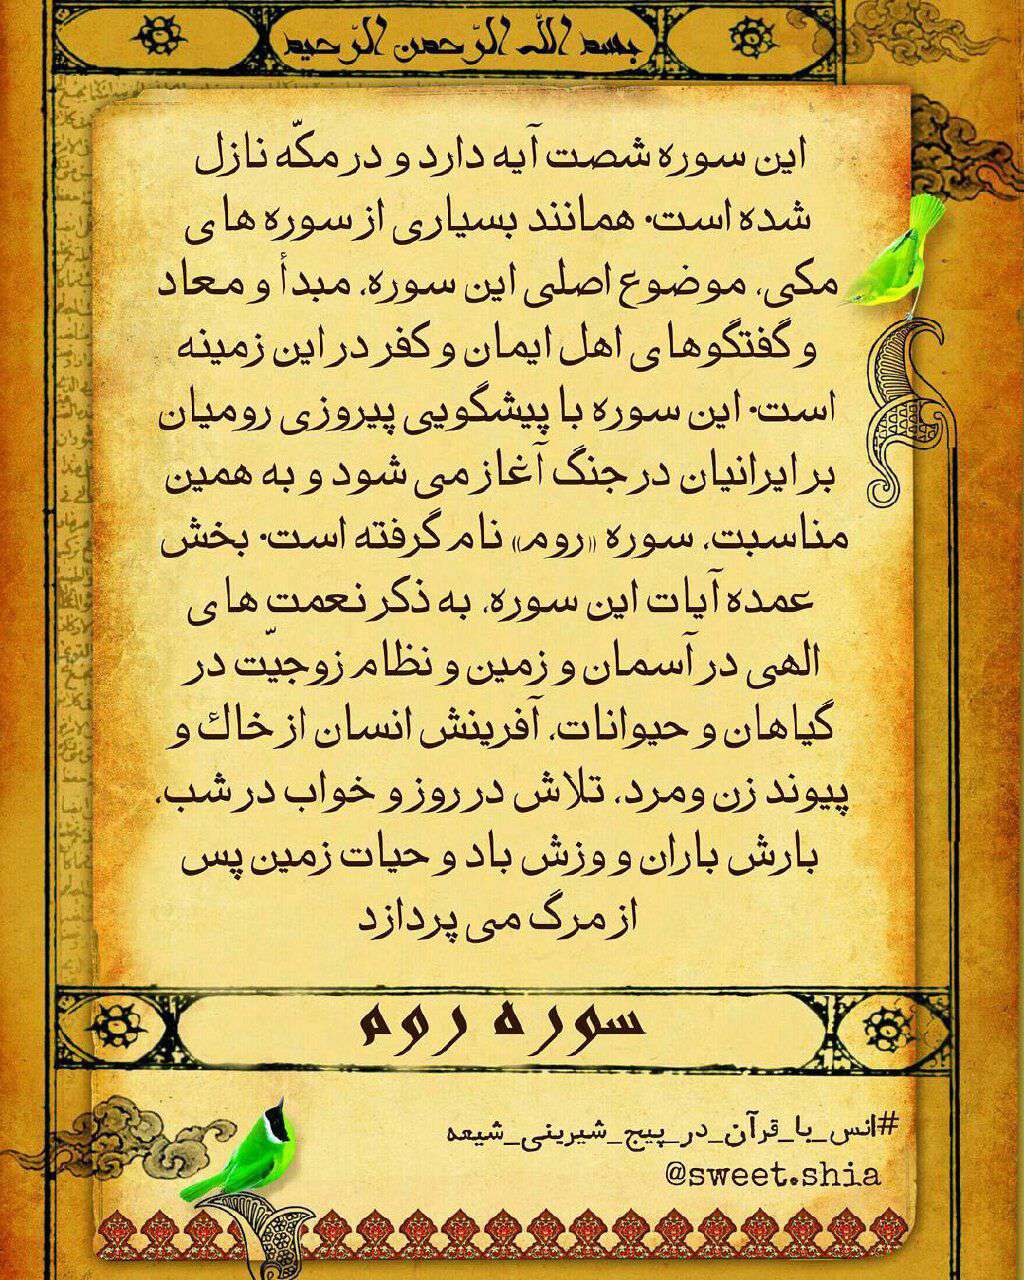 بسم اللّه الرّحمن الرّحیم
این سوره شصت آیه دارد و در مکّه نازل
شده است. همانند بسیاری از سوره های
مکی، موضوع اصلی این سوره، مبدأ و معاد
و گفتگوهای اهل ایمان و کفر در این زمینه
است. این سوره با پیشگویی پیروزی رومیان
بر ایرانیان در جنگ آغاز می شود و به همین
مناسبت، سوره «روم» نام گرفته است. بخش
عمده آیات این سوره، به ذکر نعمت های
الهی در آسمان و زمین و نظام زوجیّت در
گیاهان و حیوانات، آفرینش انسان از خاک و
پیوند زن ومرد، تلاش در روز و خواب در شب،
بارش باران و وزش باد و حیات زمین پس
از مرگ می پردازد
سوره روم
#انس_با_قرآن_در_پیج_شیرینی_شیعه
@sweet.shia